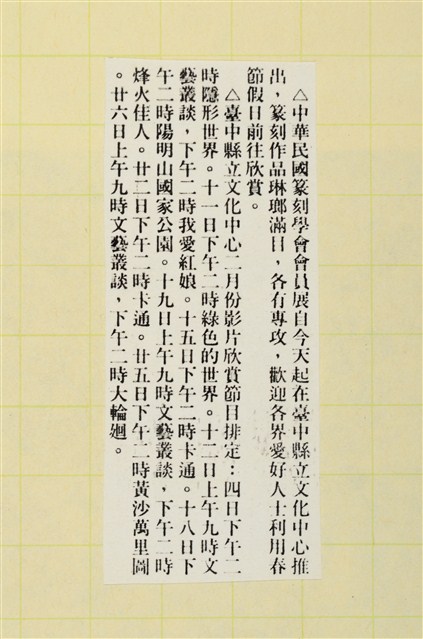 △中華民國篆刻學會會員展自今天起在臺中縣立文化中心推
出，篆刻作品琳瑯滿目，各有專攻，歡迎各界愛好人士利用春
節假日前往欣賞。
△臺中縣立文化中心二月份影片欣賞節目排定：四日下午二
時隱形世界。十一日下午二時綠色的世界。十二日上午九時文
藝叢談，下午二時我愛紅娘。十五日下午二時卡通。十八日下
午二時陽明山國家公園。十九日上午九時文藝叢談，下午二時
烽火佳人。廿二日下午二時卡通。廿五日下午二時黃沙萬里圖
。廿六日上午九時文藝叢談，下午二時大輪廻。